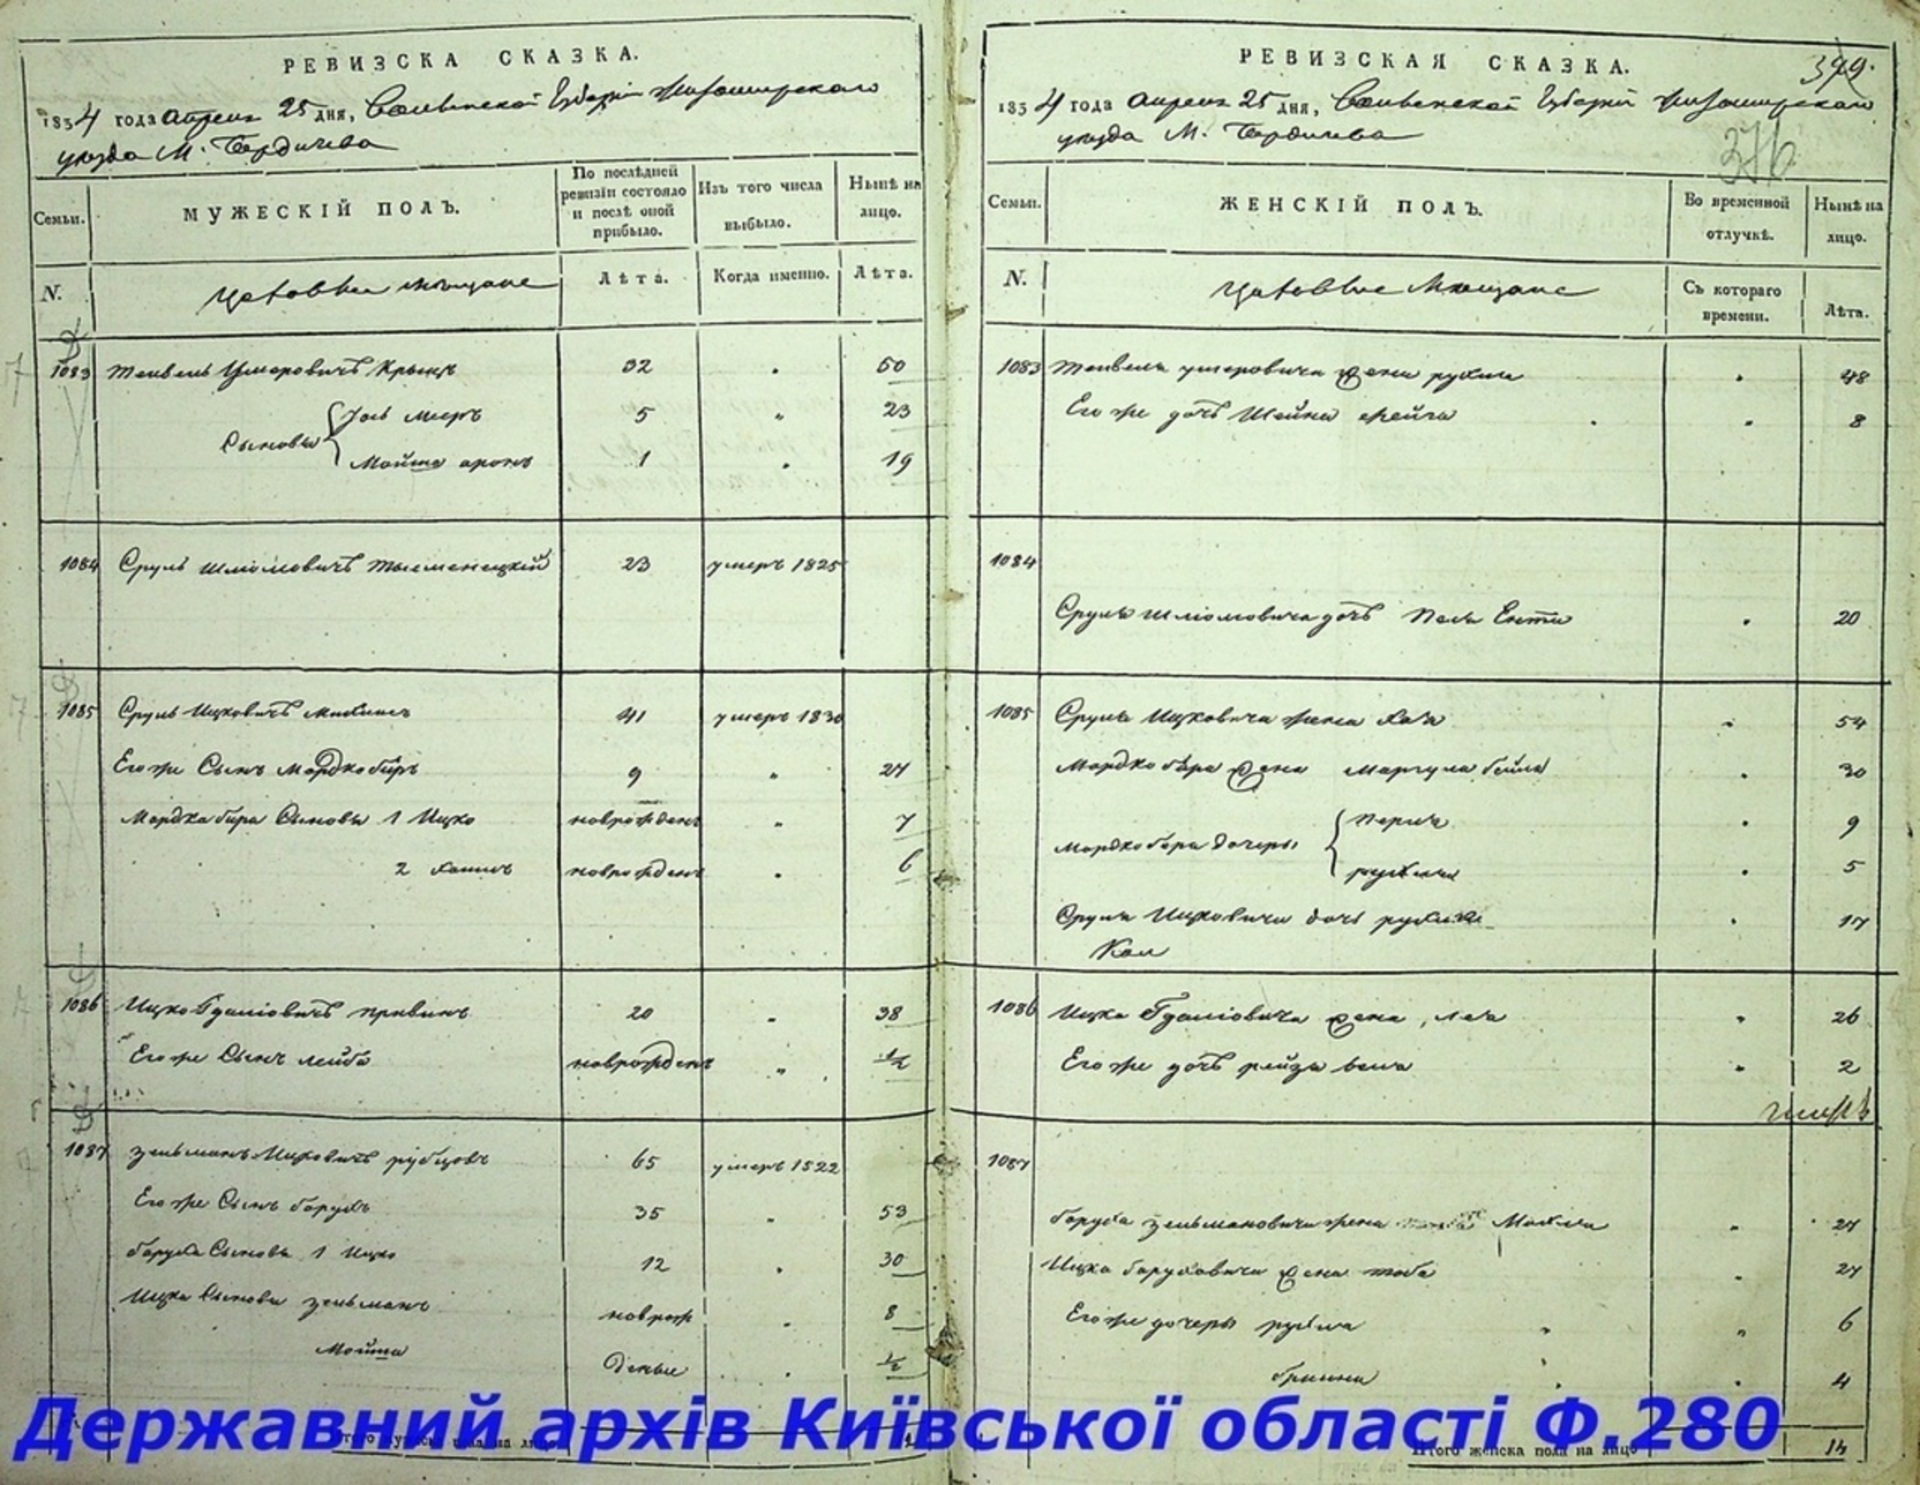 РЕВИЗСКА СКАЗКА.
1834 года апреля 25 дня, Волынской Губерніи Житомирскаго
уезда М. Бердичева
Семьи.
МУЖЕСКІЙ ПОЛЪ.
По послѣдней ревизіи состояло и послѣ оной прибыло.
Изъ того числа выбыло.
Нынѣ на лицо.
N.
мещане
Лѣта.
Когда именно.
Лѣта.
1083 Тевель Умеровичъ 32 50
Сыновья Іось Меер 5 23
Мойша аронъ 1 19
1084 Сруль Шліомовичъ Тысменецкій 23 умеръ 1825
1085 Сруль Ицковичъ 41 умеръ 1830
Его же Сынъ Мордко бѣръ 9 27
Мордка бера Сыновья 1 Ицко новорожденъ 7
2 Хаимъ новорожденъ 6
1086 Ицко 20 38
Его же Сынъ лейба новорожденъ 1/2
1087 Зельманъ Ицковичъ рубцовъ 65 умеръ 1822
Его же Сынъ борухъ 35 53
боруха Сыновья 1 Ицко 12 30
Ицка Сыновья зельманъ новорож 8
Мойша денные 1/2
РЕВИЗСКАЯ СКАЗКА.
379.
376
1834 года апреля 25 дня, Волынской Губерніи Житомирскаго
уезда М. Бердичева
Семьи.
ЖЕНСКІЙ ПОЛЪ.
Во временной отлучкѣ.
Нынѣ на лицо.
N.
Мещане
Съ котораго времени.
Лѣта.
1083 Тевеля умеровича жена рухля 48
Его же дочь Шейна фейга 8
1084
Сруля шліомовича дочь Песя Ента 20
1085 Сруля Ицковича жена Хая 54
Мордко бера жена Маргуля бейла 30
Мордко бера дочери Перля 9
рухля 5
Сруля Ицковича дочь 17
1086 Ицка жена Лея 26
Его же дочь рейза 2
1087
боруха зельмановича жена Махля 27
Ицка боруховича жена тоба 27
Его же дочери рухля 6
4
Итого женска пола на лицо 14
Державний архів Київської області Ф.280